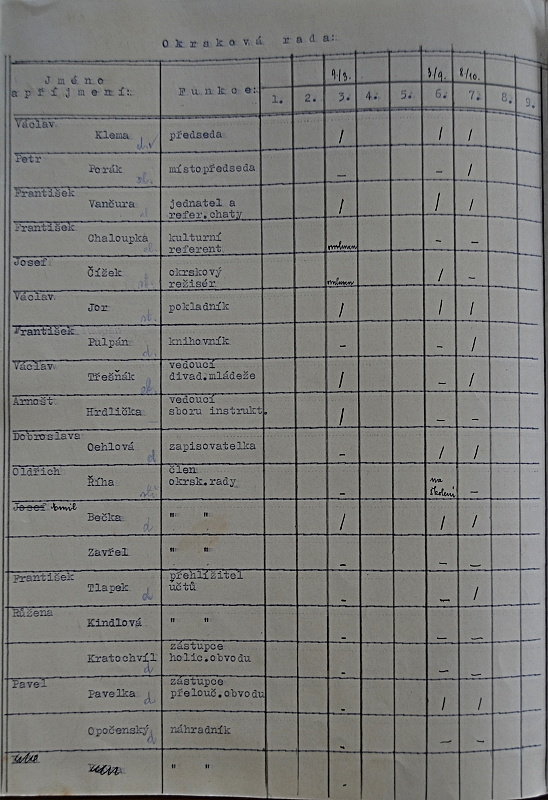 Okrsková rada:
9/3. 3/9. 8/10.
Jméno
a příjmení: Funkce: 1. 2. 3. 4. 5. 6. 7. 8. 9.
Václav
Klema předseda / / /
Petr
Porák místopředseda - - /
František
Vančura jednatel a
refer.chaty / / /
František
Chaloupka kulturní
referent omluven - -
Josef
Čížek okrskový
režisér omluven / -
Václav
Jor pokladník / / /
František
Pulpán knihovník - - /
Václav vedoucí
Třešňák divad.mládeže / - /
Arnošt vedoucí
Hrdlička sboru instrukt. / - -
Dobroslava
Oehlová zapisovatelka - / /
Oldřich člen
Říha okrsk.rady - na školení -
Josef Emil
Bečka " " / / /
Zavřel " " - - -
František přehlížitel
Tlapek účtů - - /
Růžena
Kindlová " " - - -
zástupce
Kratochvíl holic.obvodu - - -
Pavel zástupce
Pavelka přelouč.obvodu - / /
Opočenský náhradník - - -
" " -